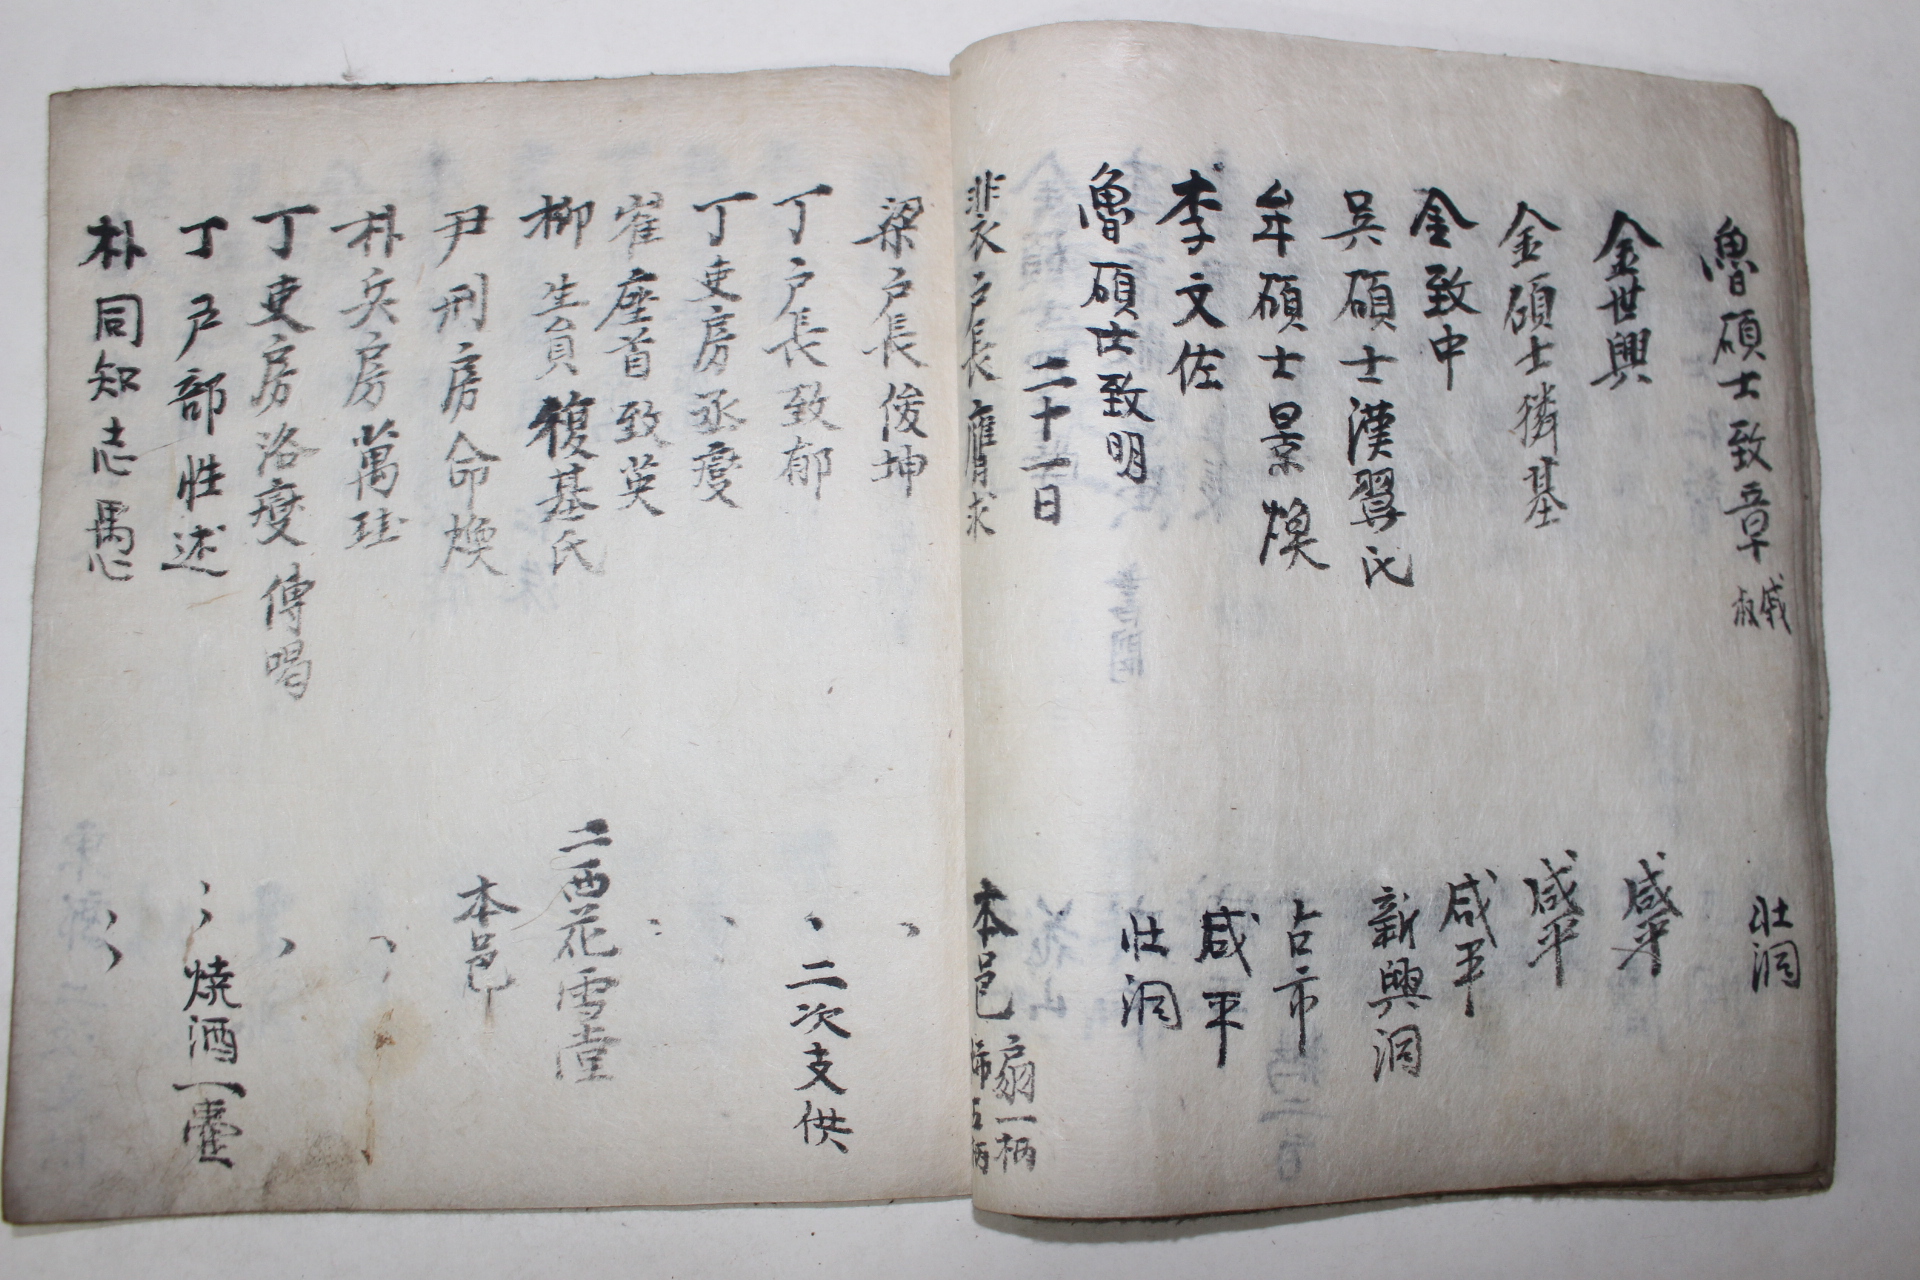 魯碩士致章 戚叔 壯洞
金世興 咸平
金碩士獜基 咸平
金致中 咸平
吳碩士漢翼氏 新興洞
牟碩士景煥 占市
李文佐 咸平
魯碩士致明 壯洞
二十一日
裴戶長膺求 本邑 扇一柄
梁戶長俊坤 ヽ
丁戶長致郁 ヽ 二次支供
丁吏房丞燮 ヽ
崔座首致英 ヽ
柳生員馥基氏 二西花雪堂
尹刑房命煥 本邑
朴兵房萬珪 ヽ
丁吏房洛燮 傳喝 ヽ
丁戶部性述 ヽヽ 燒酒一壺
朴同知志愚 ヽヽ